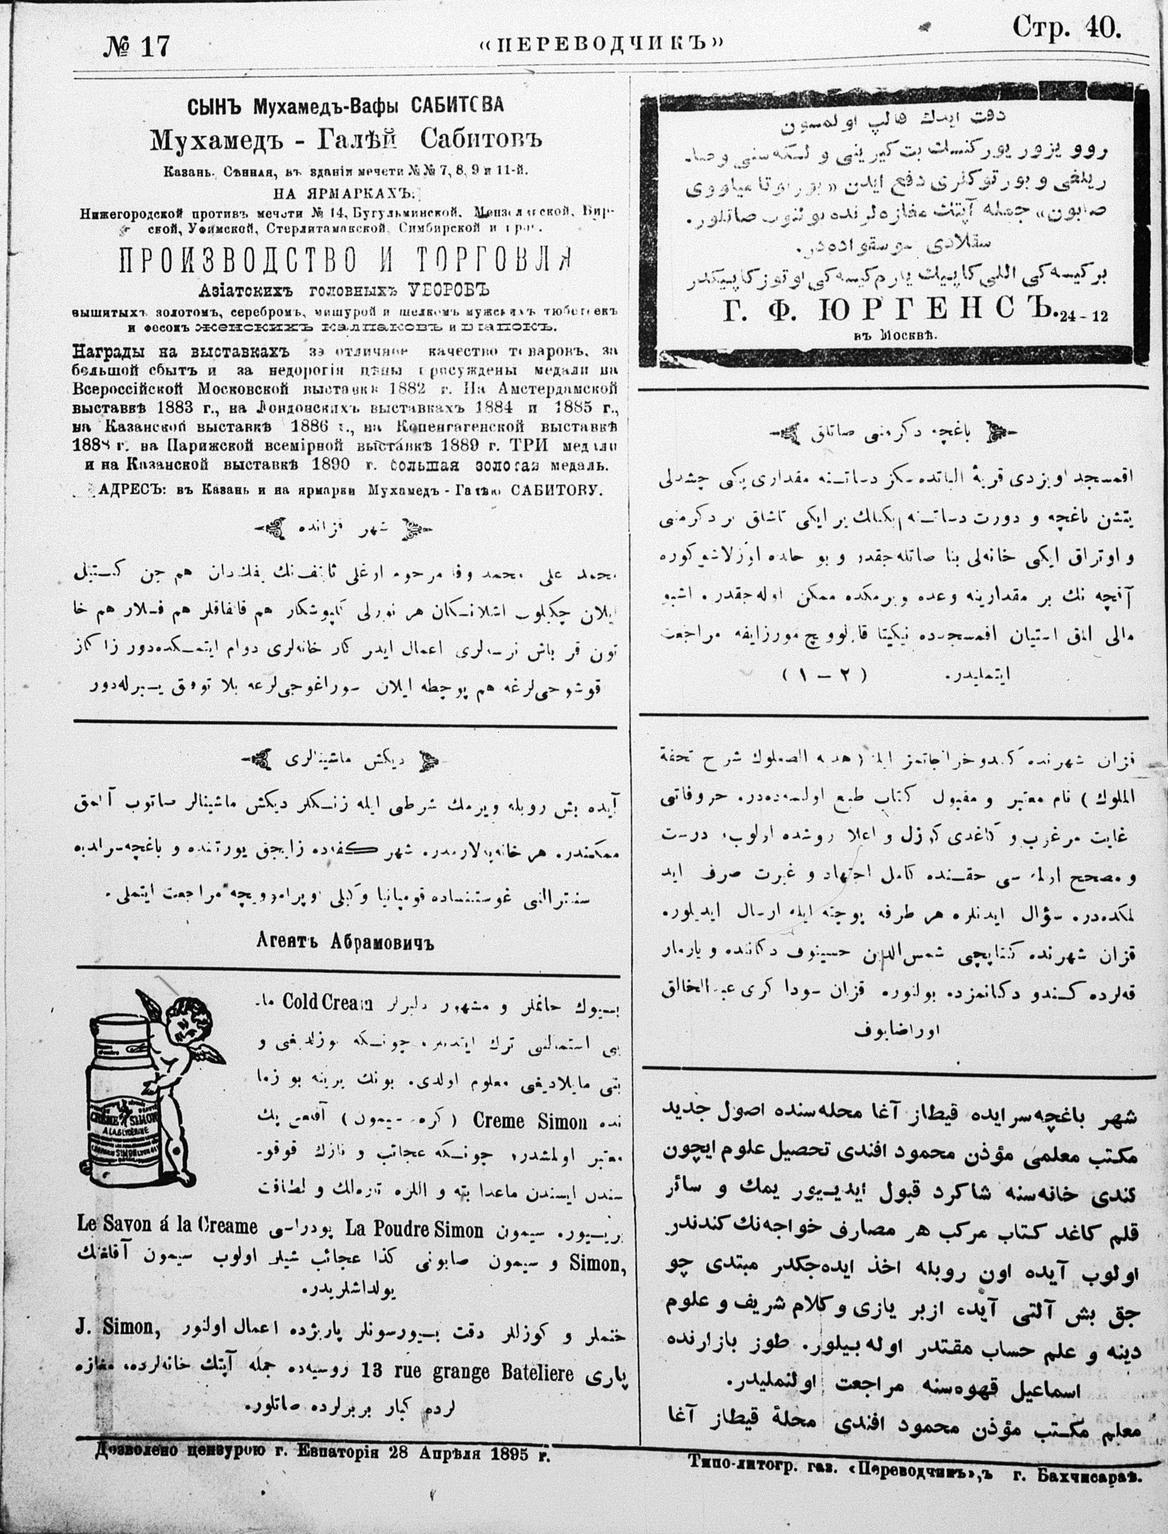 № 17
«ПЕРЕВОДЧИКЪ»
Стр. 40.
СЫНЪ Мухамедъ-Вафы САБИТОВА
Мухамедъ - Галѣй Сабитовъ
Казань. Сѣнная, въ зданіи мечети №№ 7, 8, 9 и 11-й.
НА ЯРМАРКАХЪ:
Нижегородской противъ мечети № 14, Бугульминской, Мензелинской, Бир-
ской, Уфимской, Стерлитамакской, Симбирской и
ПРОИЗВОДСТВО И ТОРГОВЛЯ
Азіатскихъ головныхъ УБОРОВЪ
вышитыхъ золотомъ, серебромъ, мишурой и шелкомъ мужскихъ тюбетеекъ
и фесокъ женскихъ калпаковъ и шапокъ.
Награды на выставкахъ за отличное качество товаровъ, за
большой сбытъ и за недорогія цѣны присуждены медали на
Всероссійской Московской выставкѣ 1882 г. На Амстердамской
выставкѣ 1883 г., на Лондонскихъ выставкахъ 1884 и 1885 г.,
на Казанской выставкѣ 1886 г., на Копенгагенской выставкѣ
1888 г. на Парижской всемірной выставкѣ 1889 г. ТРИ медали
и на Казанской выставкѣ 1890 г. большая золотая медаль.
АДРЕСЪ: въ Казань и на ярмарки Мухамедъ-Галѣю САБИТОВУ.
شهر قزانده
محمد علی محمد وفا مرحوم اوغلی
ایلان چکیلوب اشلانكان هر نورلی كلپوشكار هم قالفاقلر هم فسلار هم خا
تون قز باش نرسه‌لری اعمال ایدر كار خانه‌لری دوام ایتمكده‌دور
قوشوجی‌لرغه هم پوچطه ایلان سوراغوجی‌لرغه بلا توقف یبرله‌دور
دیكش ماشینالری
آیده بش روبله ویرمك شرطی ایله زنكر دیكش ماشینالر صاتوب آلمق
ممكندر. هر خانه‌یه لازمدر. شهر كفه‌ده یورتنده و باغچه‌سرایده
سنترالنی غوستنیتساده قومپانیا وكیلی ابراموویچه مراجعت ایتملی.
Агентъ Абрамовичъ
بیوك خانملر و مشهور دلبرلر Cold Cream ما-
نی استعمالنی ترك ایتدیلر. چونكه یوزلدیغی و
معلوم اولدی. بونك یرینه بو زما
نده Creme Simon (كره سیمون) آقلغی پك
معتبر اولمشدر، چونكه عجائب و نازك قوقو-
سندن ایسندن ماعدا یته و اللره تازه‌لك و لطافت
ویریور. سیمون La Poudre Simon پودراسی Le Savon á la Creame
Simon, و سیمون صابونی كذا عجائب شیلر اولوب سیمون آقلغنك
یولداشلریدر.
خانملر و كوزللر دقت بیورسونلر پاریژده اعمال اولنور J. Simon,
پاری 13 rue grange Bateliere روسیه‌ده جمله آپتك خانه‌لرده، مغازه
لرده كبار بربرلرده صاتلور.
CREME SIMON
A LA GLYCERINE
دقت ایدك قالپ اولمسون
روو یزور یوركنسك بت كیرینی و لكه‌سنی وصا-
ریلغی و بورتوكلری دفع ایدن «بورنوتا میلووی
صابون» جمله آپتك مغازه‌لرنده بوتنوب صاتلور.
سقلادی موسقواده‌در.
بر كیسه‌كی اللی كاپیك یارم كیسه‌كی اوتوز كاپیكدر
Г. Ф. ЮРГЕНСЪ. 24-12
въ Москвѣ.
باغچه دكرمنی صاتلق
اقمسجد اویزدی قریهٔ الباتده سكز دساتنه مقداری یكی چشدلی
یتشن باغچه و دورت دساتنه ایكنلك بر ایكی تاشلق بر دكرمنی
و اوتراق ایكی خانه‌لی بنا صاتله‌جقدر و بو حالده اوزلاشو كوره
آقچه نك بر مقدارینه وعده ویرمكده ممكن اوله‌جقدر. اشبو
مالی المق استیان اقمسجدده نیكیتا قابلوویچ مورزایفه مراجعت
ایتملیدر. (٢ – ١)
قزان شهرنده كندو خراجاتمز ایله (هدیه الصعلوك شرح تحفة
الملوك) نام معتبر و مقبول كتاب طبع اولنمده‌در. حروفاتی
غایت مرغوب و كاغدی كوزل و اعلا روشده اولوب، درست
و مصحح اولمه سی حقنده كامل اجتهاد و غیرت صرف اید
لمكده‌در. سؤال ایدنلره هر طرفه پوچته ایله ارسال ایدیلور.
قزان شهرنده كتابچی شمس‌الدین حسینوف دكاننده و یارمار
قه‌لرده كندو دكانمزده بولنور. قزان سوداكری عبدالخالق
اوراضایوف
شهر باغچه‌سرایده قیطاز آغا محله‌سنده اصول جدید
مكتب معلمی مؤذن محمود افندی تحصیل علوم ایچون
كندی خانه‌سنه شاكرد قبول ایدییور یمك و سائر
قلم كاغد كتاب مركب هر مصارف خواجه‌نك كندندر
اولوب آیده اون روبله اخذ ایده‌جكدر مبتدی چو
جق بش آلتی آیده ازبر یازی و كلام شریف و علوم
دینه و علم حساب مقتدر اوله بیلور. طوز بازارنده
اسماعیل قهوه‌سنه مراجعت اولنملیدر.
معلم مكتب مؤذن محمود افندی محلهٔ قیطاز آغا
Дозволено цензурою г. Евпаторія 28 Апрѣля 1895 г.
Типо-литогр. газ. «Переводчикъ»,ъ г. Бахчисараѣ.